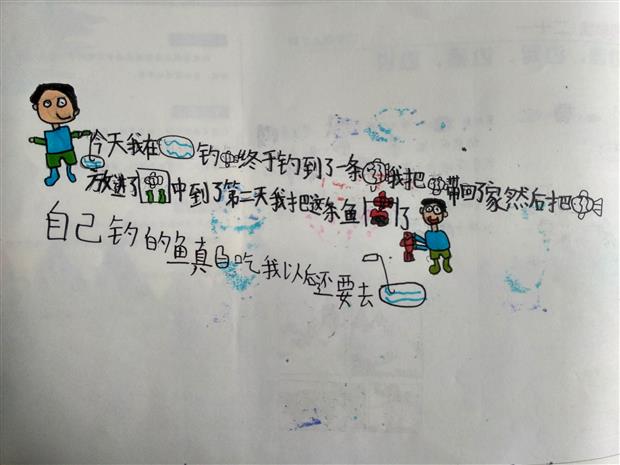 今天我在钓终于钓到了一条我把带回了家然后把
放进了中到了第二天我把这条鱼了
自己钓的鱼真吃我以后还要去